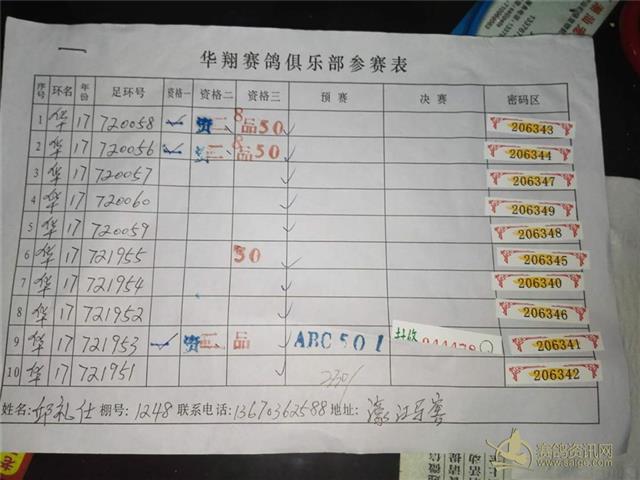 华翔赛鸽俱乐部参赛表
序号 环名 年份 足环号 资格一 资格二 资格三 预赛 决赛 密码区
1 华 17 720058 资二 8品50 206343
2 华 17 720056 资二 8品50 206344
3 华 17 720057 206347
4 华 17 720060 206349
5 华 17 720059 206348
6 华 17 721955 50 206345
7 华 17 721954 206340
8 华 17 721952 206346
9 华 17 721953 资二 品 ABC501 206341
10 华 17 721951 206342
姓名:邱礼仕 棚号:1248 联系电话:13670362588 地址:
赛鸽资讯网
www.saige.com